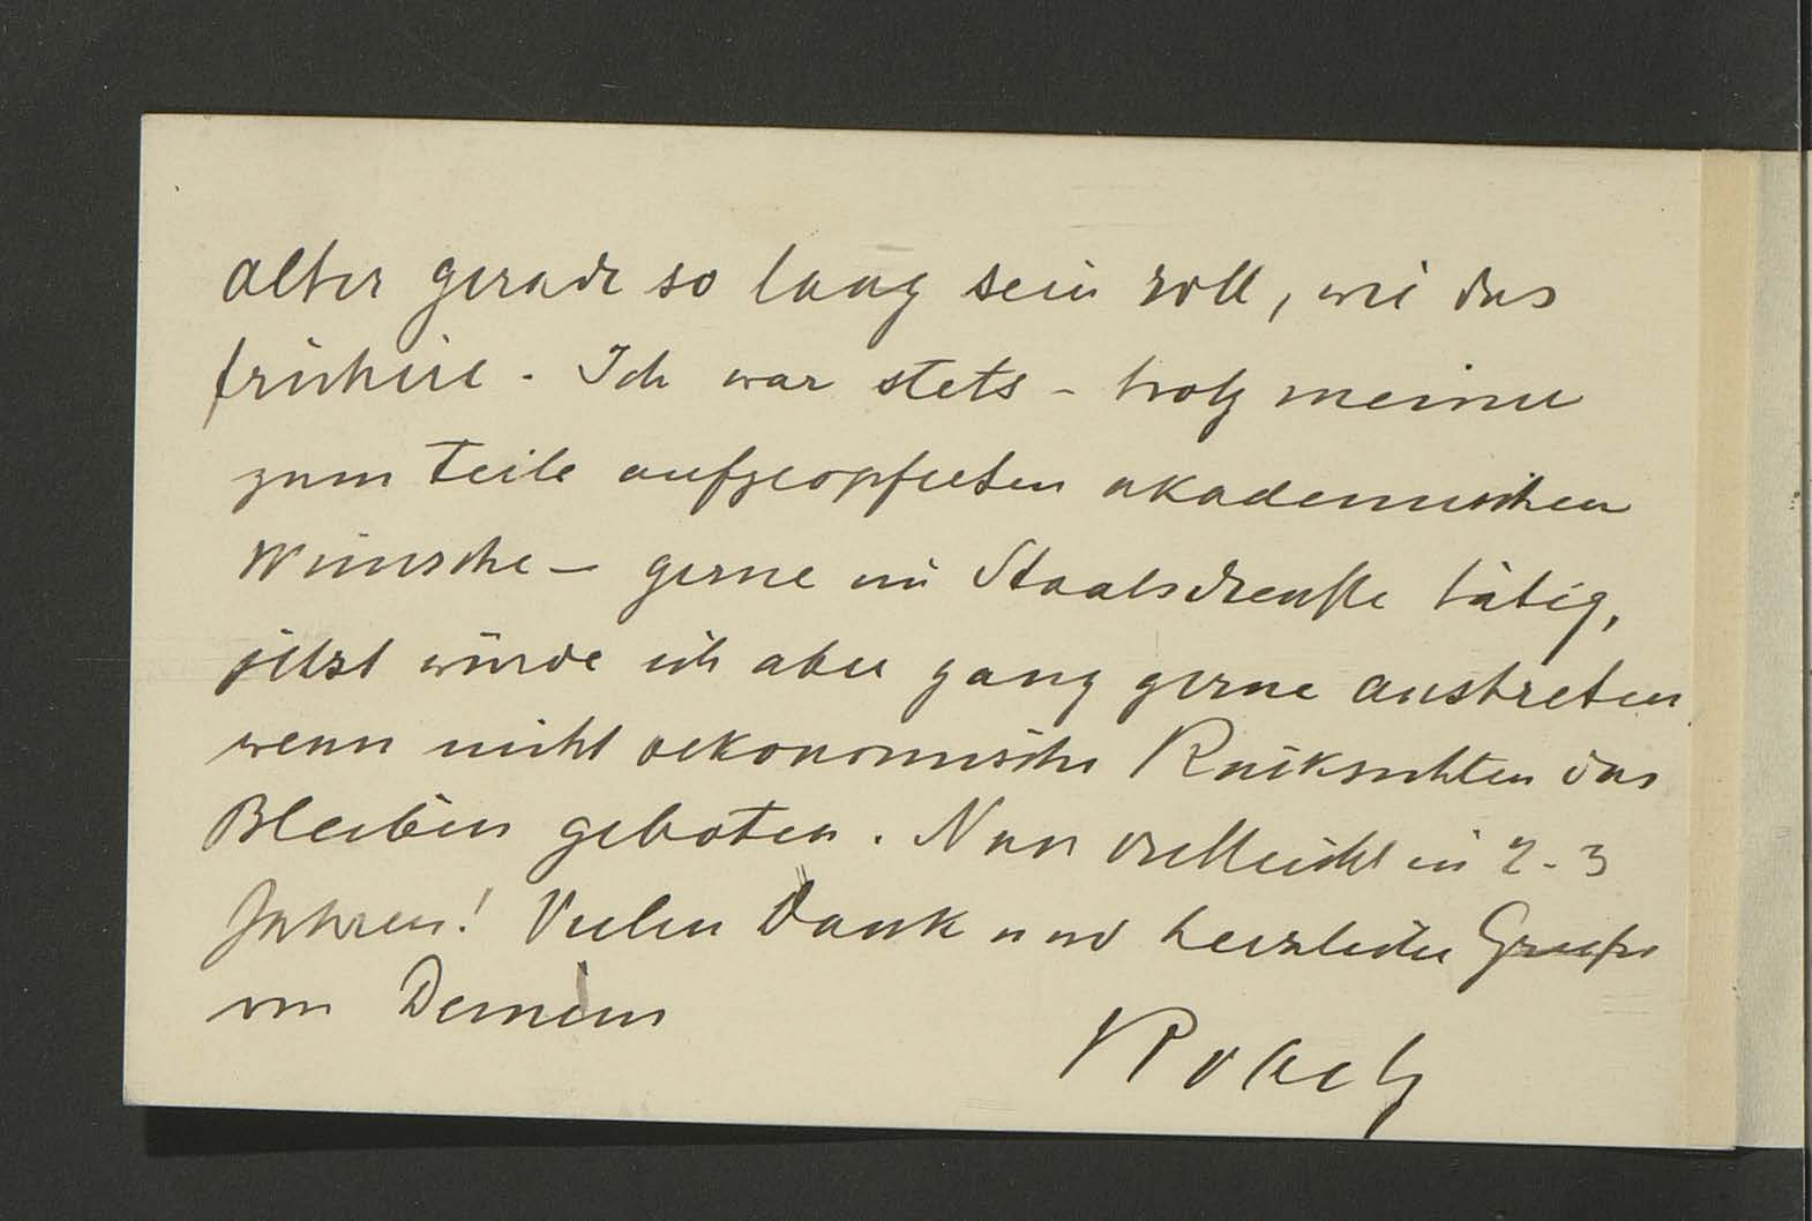 alter gerade so lang sein soll, wie das
frühere. Ich war stets - trotz meiner
zum Teile aufgeopferten akademischen
Wünsche - gerne im Staatsdienste tätig,
jetzt würde ich aber ganz gerne austreten,
wenn nicht oekonomische Rücksichten das
Bleiben geboten. Nun vielleicht in 2-3
Jahren! Vielen Dank und herzliche Grüße
von Deinem